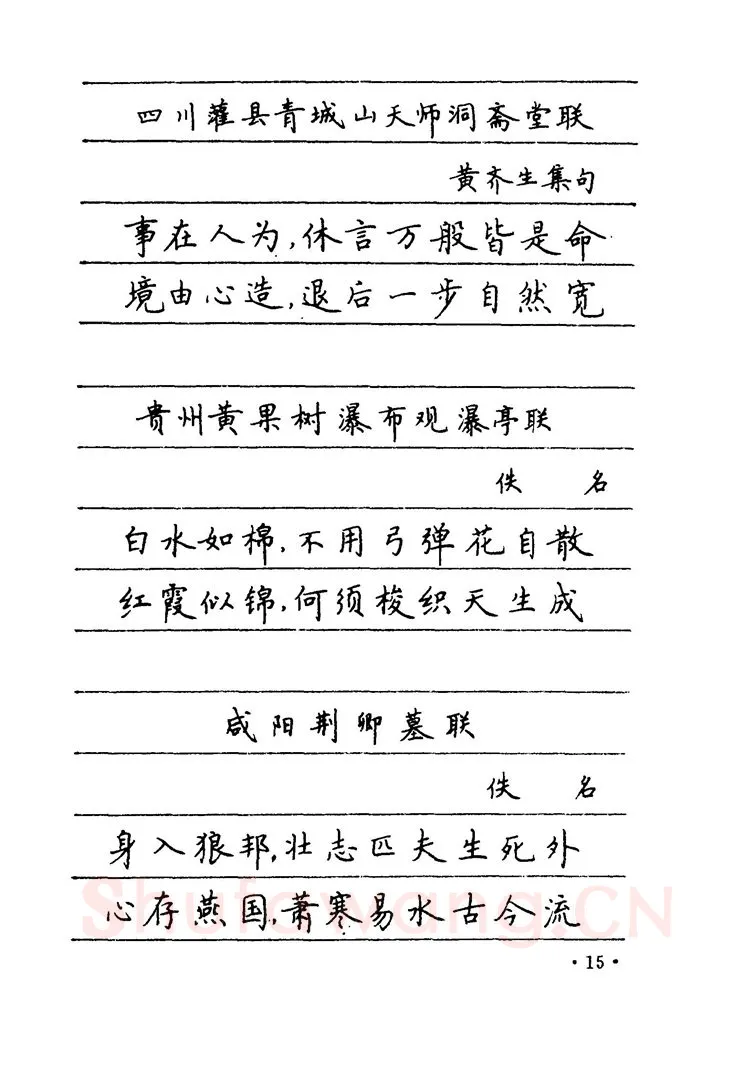 四川灌县青城山天师洞斋堂联
黄齐生集句
事在人为,休言万般皆是命
境由心造,退后一步自然宽
贵州黄果树瀑布观瀑亭联
佚 名
白水如棉,不用弓弹花自散
红霞似锦,何须梭织天生成
咸阳荆卿墓联
佚 名
身入狼邦,壮志匹夫生死外
心存燕国,萧寒易水古今流
Shufawang.CN
·15·